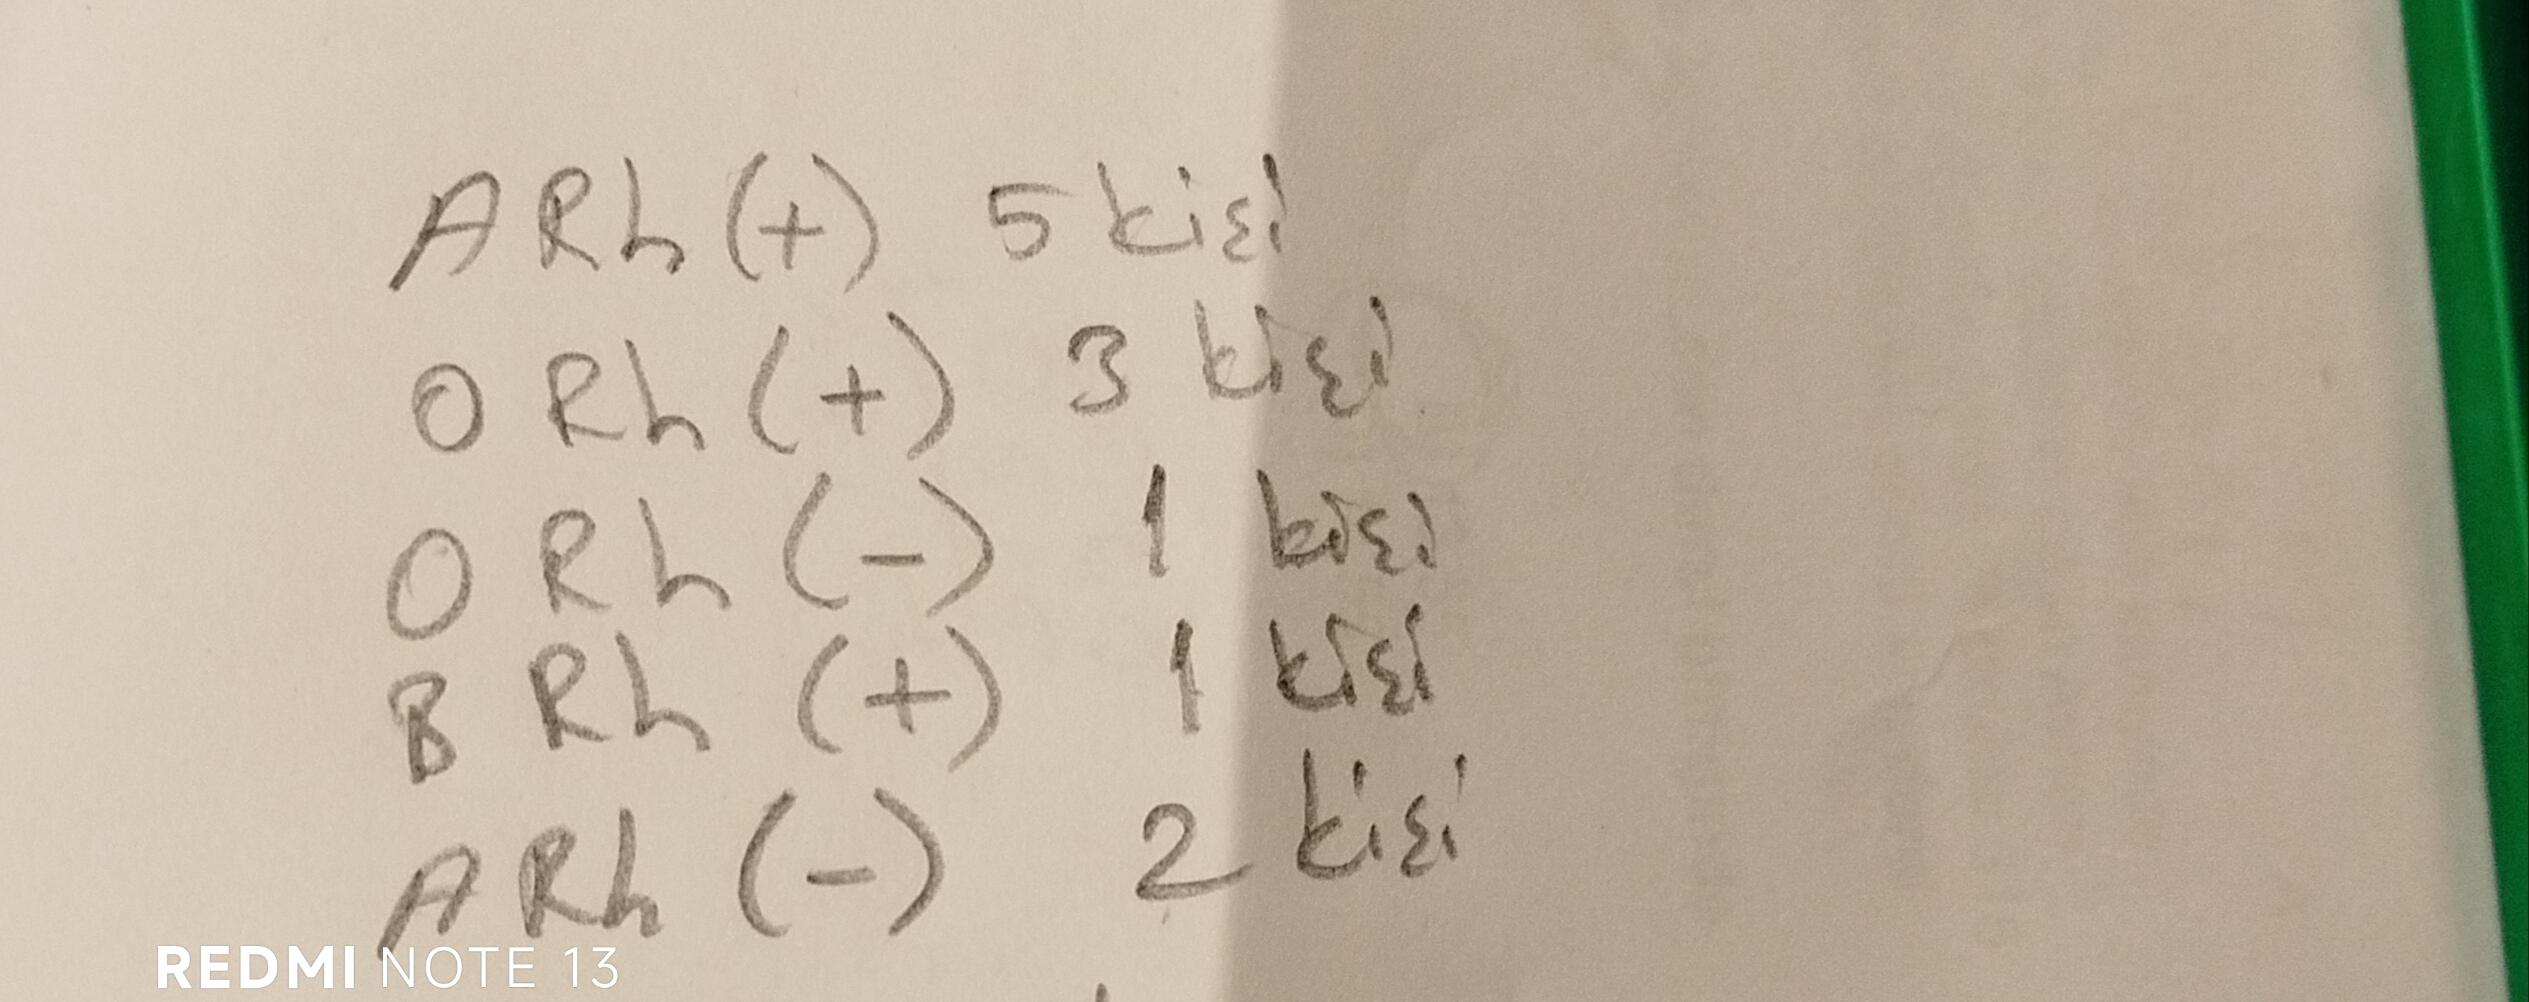 A Rh (+) 5 kişi
O Rh (+) 3 kişi
O Rh (-) 1 kişi
B Rh (+) 1 kişi
A Rh (-) 2 kişi
REDMI NOTE 13